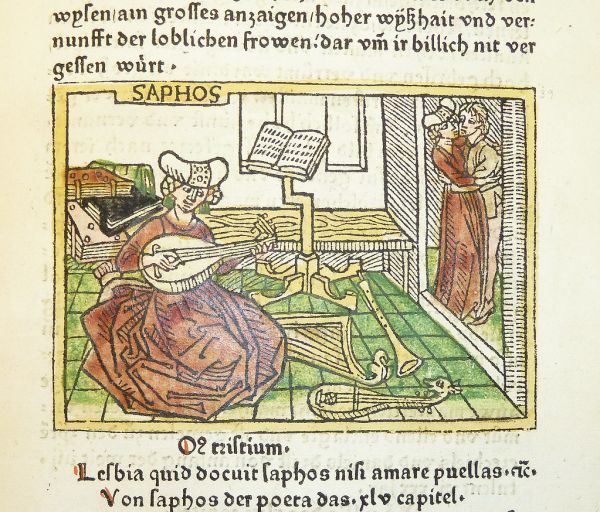 wÿsen/ain grosses anzaigen/hoher wÿßhait vnd ver⸗
nunfft der loblichen frowen/dar vm̄ ir billich nit ver
gessen würt.
SAPHOS
tristium.
Lesbia quid docuit saphos nisi amare puellas. ꝛc̄.
Von saphos der poeta das .xlv capitel.